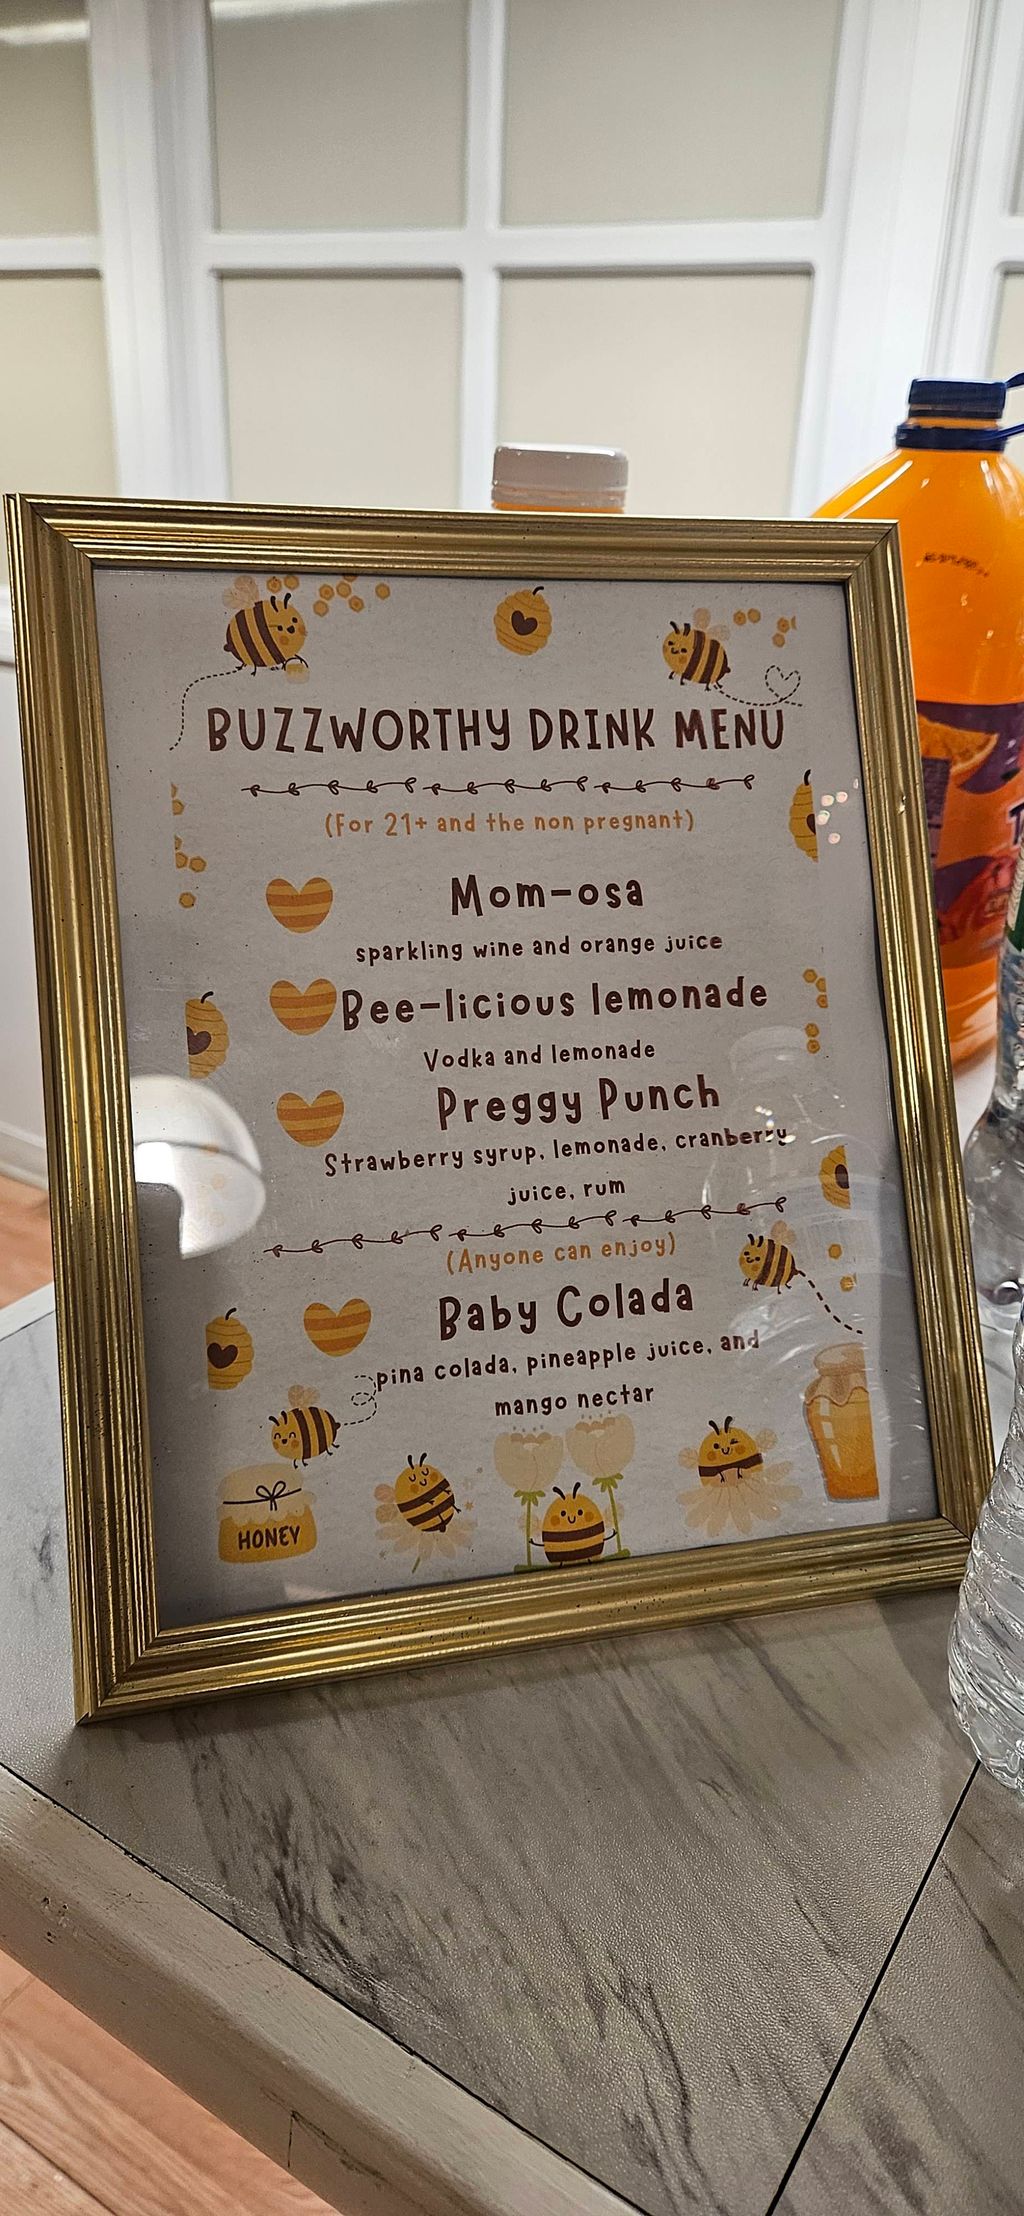 BUZZWORTHY DRINK MENU
(For 21+ and the non pregnant)
Mom-osa
sparkling wine and orange juice
Bee-licious lemonade
Vodka and lemonade
Preggy Punch
Strawberry syrup, lemonade, cranberry
juice, rum
(Anyone can enjoy)
Baby Colada
pina colada, pineapple juice, and
mango nectar
HONEY